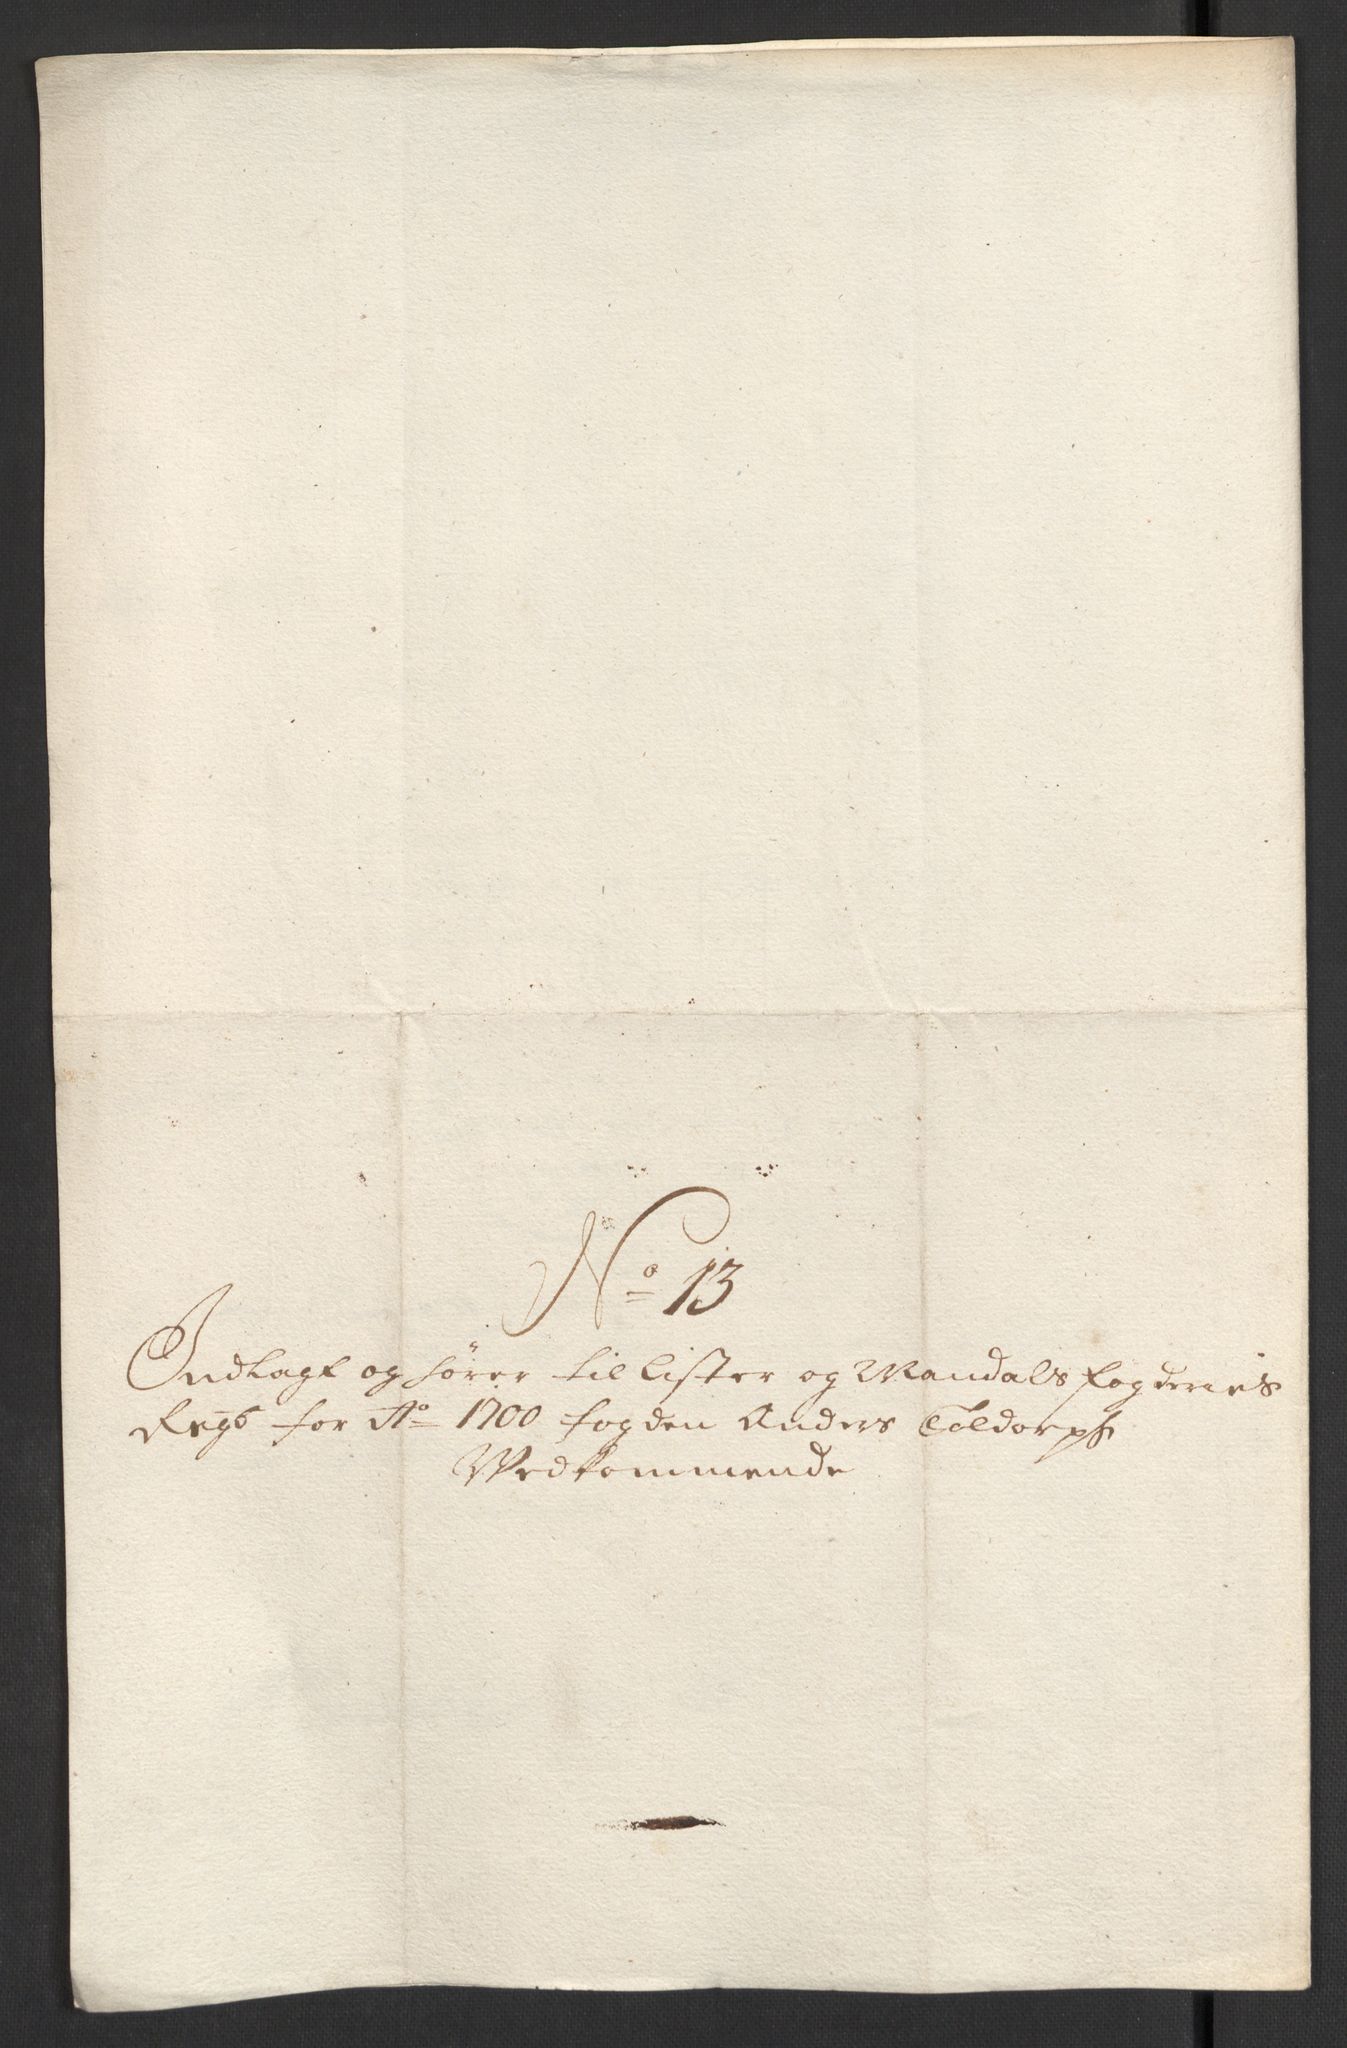 No 13
Indlagt og hører til Lister og Mandals fogderies
Regs for Ao 1700 fogden Anders Toldorph
Vedkommende